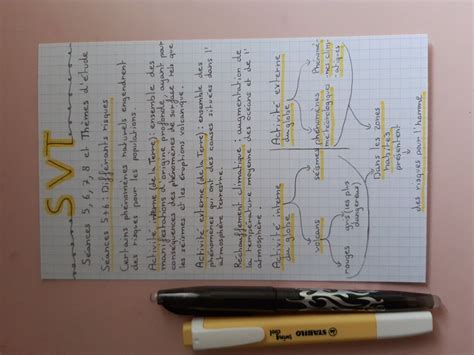 SVT
Séances 5, 6, 7, 8 et Thèmes d'étude
Séances 5+6 : Différents risques
Certains phénomènes naturels engendrent
des risques pour les populations.
Activité interne (de la Terre) : ensemble des
manifestations d'origine profonde, ayant pour
conséquences des phénomènes de surface tels que
les séismes et les éruptions volcanique.
Activité externe (de la Terre) : ensemble des
phénomènes qui ont des causes situées dans l'
atmosphère terrestre.
Réchauffement climatique : augmentation de
la température moyenne des océans et de l'
atmosphère.
Activité interne
du globe
Activité externe
du globe
volcans
séismes
phénomènes
météorologiques
Phénomè-
nes clim-
atiques
rouges
gris (les plus
dangereux)
Dans les zones
habitées
présentent
des risques pour l'homme
STABILO
swing
cool